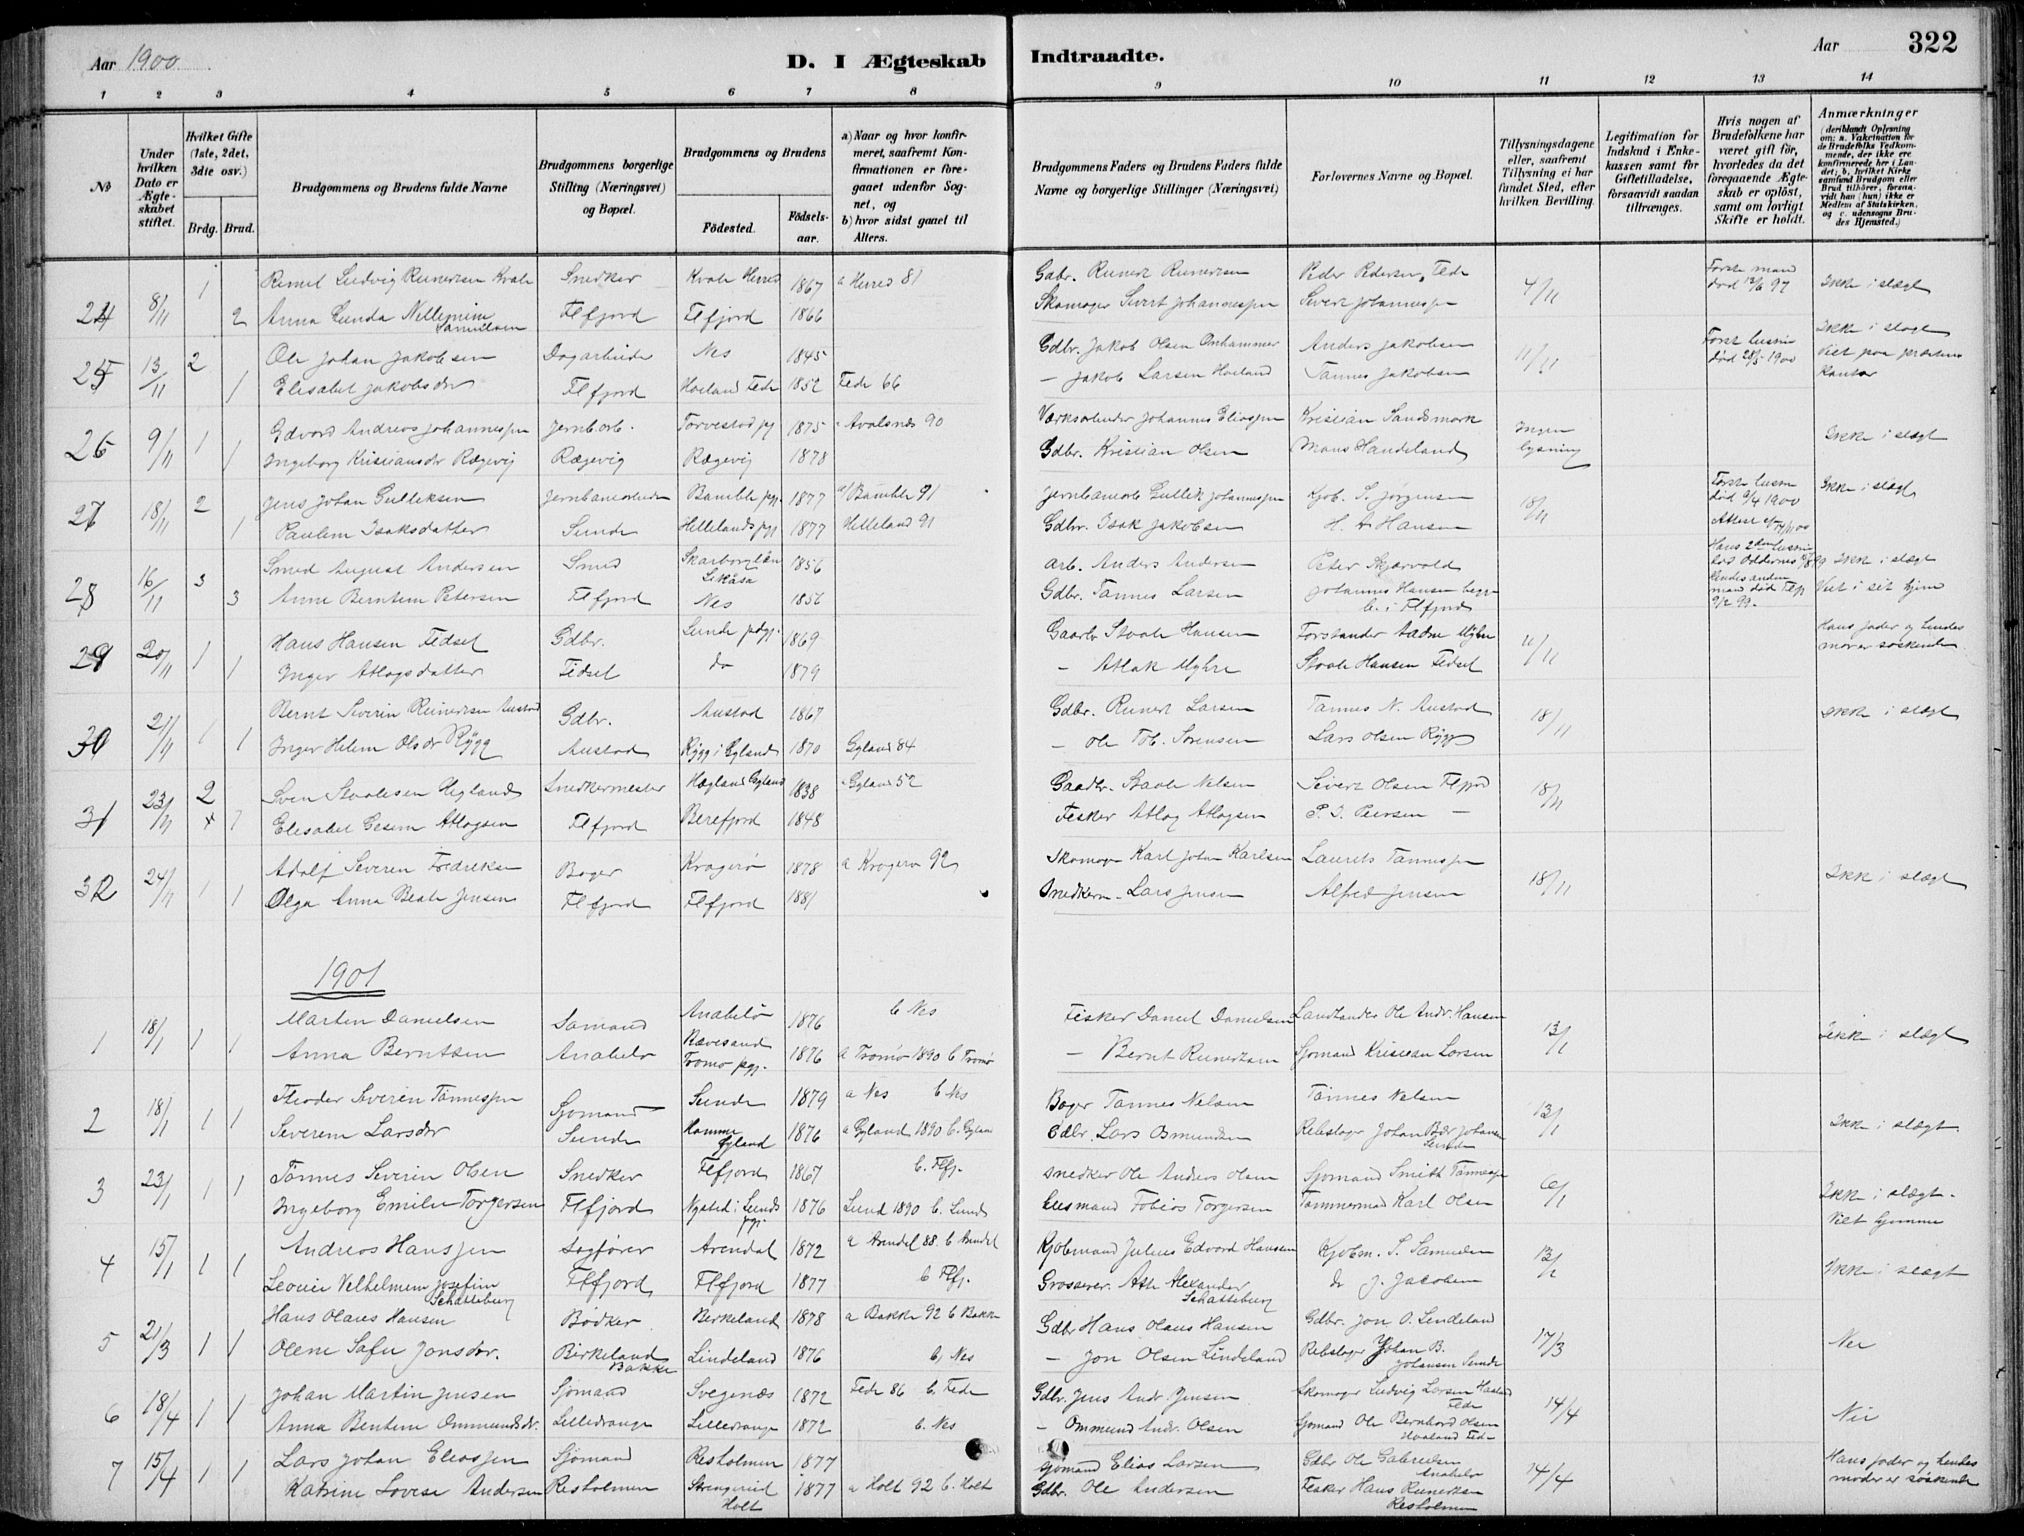 Aar 1900
D. I Ægteskab Indtraadte.
Aar
322
1 2 3 4 5 6 7 8 9 10 11 12 13 14
No
Under hvilken Dato er Ægteskabet stiftet.
Hvilket Gifte (1ste, 2det, 3die osv.)
Brdg. Brud.
Brudgommens og Brudens fulde Navne
Brudgommens borgerlige Stilling (Næringsvei) og Bopæl.
Brudgommens og Brudens
Födested.
Födselsaar.
a) Naar og hvor konfirmeret, saafremt Konfirmationen er foregaaet udenfor Sognet, og
b) hvor sidst gaaet til Alters.
Brudgommens Faders og Brudens Faders fulde Navne og borgerlige Stillinger (Næringsvei)
Forlovernes Navne og Bopæl.
Tillysningsdagene eller, saafremt Tillysning ei har fundet Sted, efter hvilken Bevilling.
Legitimation for Indskud i Enkekassen samt for Giftetilladelse, forsaavidt saadan tiltrænges.
Hvis nogen af Brudefolkene har været gift för, hvorledes da det foregaaende Ægteskab er oplöst, samt om lovligt Skifte er holdt.
Anmærkninger
(deriblandt Oplysning om: a. Vakcination for de Brudefolks Vedkommende, der ikke ere konfirmerede her i Landet; b. hvilket Kirkesamfund Brudgom eller Brud tilhörer, forsaavidt han (hun) ikke er Medlem af Statskirken, og c. udensogns Brudes Hjemsted.)
24 8/11 1 Ludvig Reinertsen Kvale Snedker 1867 a Herred 81 Gabr. Reinert Reinertsen Peder Pedersen, Fede 4/11 Første mand død 12/6 97 Ikke i slægt
2 Anna Flefjord Flefjord 1866 Skomager Sivert Johannessen Sivert Johannessen
25 13/11 2 Ole Johan Jakobsen Dagarbeider Nes 1845 Gdbr. Jakob Olsen Omhammer Anders Jakobsen 11/11 Først hustru død 28/5 1900 Ikke i slægt
1 Elisabet Jakobsdr Flefjord Hoeland Fede 1852 Fede 66 - Jakob Larsen Hoeland Tønnes Jakobsen Viet paa præstens kontor
26 9/11 1 Edvard Andreas Johannessen Jernb.arb. Torvestad pg 1875 Avalsnes 90 Johannes Eliassen Kristian Sandsmark Ingen lysning Ikke i slægt
1 Ingeborg Kristiansdr Rægevig Rægevig Rægevig 1878 Gdbr. Kristian Olsen Mons Handeland
27 18/11 2 Jens Johan Gulleksen Jernbanearbeider Bamble pgj. 1877 a) Bamble 91 Jernbanearb Gullek Johannessen Kjøb. S. Jørgensen 18/11 Første hustru død 9/4 1900 Ikke i slægt
1 Pauline Isaksdatter Sunde Hellelands pgj 1877 Helleland 91 Gdbr. Isak Jakobsen H. A Hansen
28 16/11 3 Smed August Andersen Smed 1856 arb. Anders Andersen Peter Skjærvold Ikke i slægt
3 Anne Berntine Petersen Flefjord Nes 1856 Gdbr. Tønnes Larsen Johannes Hansen begge b. i Flefjord Viet i sit hjem
29 20/11 1 Hans Hansen Fidsel Gdbr. Lunde pdgj. 1869 Gaardb Staale Hansen Forstander 11/11 Hans fader og hendes mor er søskende
1 Inger Atlagsdatter Fidsel do 1879 - Atlak Myhre Staale Hansen Fedsel
30 21/11 1 Bernt Severin Reinertsen Austad Gdbr. Austad 1867 Gdbr. Reinert Larsen Tønnes N. Austad 18/11 Ikke i slægt
1 Inger Helene Olsdr Rygg Austad Rygg i Gyland 1870 Gyland 84 - Ole Tob. Sørensen Lars Olsen Rygg
31 23/11 2 Sven Staalesen Ueland Snedkermester Hægland Gyland 1838 Gyland 52 Gaardbr. Staale Nelsen Sivert Olsen Flfjord 18/11
Elisabet Gesine Atlagsen Flefjord Berefjord 1848 Fisker Atlag Atlagsen P. J. Peersen -
32 24/11 1 Adolf Severin Fredriksen Bager Kragerø 1878 a Kragerø 92 Skomager Karl Johan Karlsen Laurits Tønnessen 18/11 Ikke i slægt
1 Olga Anna Beate Jensen Flefjord Flefjord 1881 Snedkerm. Lars Jensen Alfred Jensen
1901
1 18/1 1 1 Martin Danielsen Sømand Anabelø 1876 b Nes Fisker Daniel Danielsen Landhandler Ole Andr. Hansen 13/1 Ikke i slægt
Anna Berntsen Anabelø Rævesand Tromø pgj. 1876 a Tromø 1890 b Tromø - Bernt Reinertsen Sjømand Kristian Larsen
2 18/1 1 1 Theodor Severin Tønnessen Sjømand Sunde 1879 a Nes b Nes Bager Tønnes Nelsen Tønnes Nelsen 13/1 Ikke i slægt.
Severine Larsdr Sunde Homme Gyland 1876 a Gyland 1890 b. Gyland Gdbr. Lars Osmundsen Rebslager Johan Johansen Sunde
3 23/1 1 1 Tønnes Severin Olsen Snedker Flefjord 1867 b. Flfj. Snedker Ole Anders Olsen Sjømand Smith Tønnessen 6/1 Ikke i slægt.
Ingeborg Emilie Torgersen Flefjord Nysted i Lunds pgj. 1876 Lund 1890 b. Lund Husmand Tobias Torgersen Tømmermand Karl Olsen Viet hjemme
4 15/1 1 1 Andreas Hanssen Sagfører Arendal 1872 a Arendal 88. b Arendal Kjøbmand Julius Edvard Hansen Kjøbm. S. Samuelsen 13/1 Ikke i slægt
Velhelmine Josefine Schatteburg Flefjord Flefjord 1877 b Flfj. Grosserer. Alexander Schatteburg do J. Jacobsen
5 21/3 1 1 Hans Olaus Hansen Bødker Berkeland 1878 a Bakke 92 b Bakke Gdbr Hans Olaus Hansen Gdbr. Jon O. Lindeland 17/3 Nei
Olene Sofie Jonsdr. Birkeland Bakke Lindeland 1876 b. Nes - Jon Olsen Lindeland Rebslager Johan B. Johansen Sunde
6 18/4 1 1 Johan Martin Jensen Sjømand Svegenæs 1872 Fede 86 b. Fede Gdbr. Jens Andr. Jensen Skomager Ludvig Larsen Fede 14/4 Nei
Anna Bentine Ommundsdr. Lilledrange Lilledrange 1872 b. Nes - Ommund Andr. Olsen Sjømand Ole Bernhard Olsen Haaland Fede
7 15/4 1 1 Lars Johan Eliassen Sjømand Resholmen 1877 Sjømand Elias Larsen Gdbr Ole Gabrielsen Anabelø 14/4 Hans fader og hendes moder er søskende
Katrine Lovise Andersen Resholmen Strengereid Holt 1877 a Holt 92 b. Holt Gdbr. Ole Andersen Fisker Hans Reinertsen Resholmen